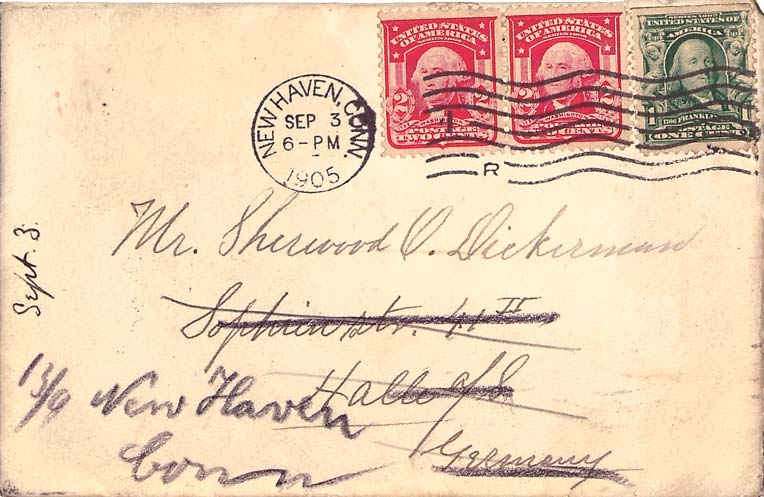 UNITED STATES OF AMERICA
SERIES 1902
2 2
WASHINGTON
POSTAGE
TWO CENTS
UNITED STATES OF AMERICA
SERIES 1902
2 2
WASHINGTON
POSTAGE
TWO CENTS
SERIES 1902
UNITED STATES OF AMERICA
1 1
FRANKLIN
POSTAGE
ONE CENT
NEW HAVEN, CONN.
SEP 3
6-PM
1905
R
Mr. Sherwood O. Dickerman
Sophienstr. 41 II
Halle a/S
Germany
Sept. 3.
13/9 New Haven
Conn